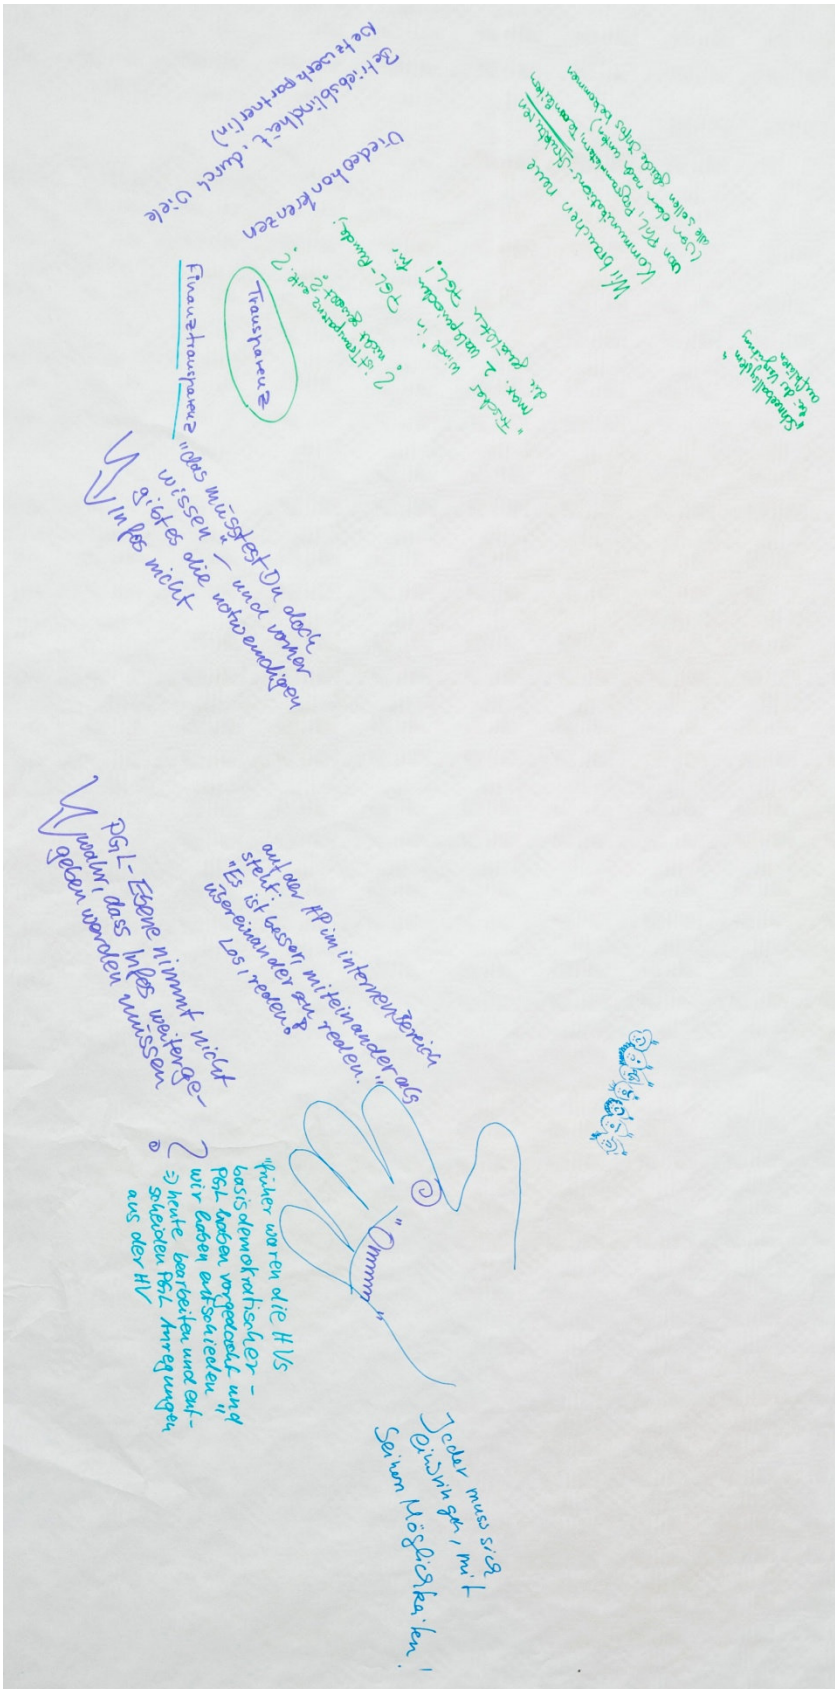 Betriebsblindheit, durch viele
Netzwerkpartner(in)
Viedeokonfrenzen
Finanztransparenz
Transparenz
? ist Transparenz evtl.
nicht gewollt?
"Frischer Wind" in PGL-Runde!
max. 2 Wahlperioden für
die gewählten PGL!
Wir brauchen neue
Kommunikations-Strukturen
von PGL, Programmleitern, Teamleitern
(von oben nach unten)
alle sollen gleiche Infos bekommen
"Schneeballsystem"
bei der Vergütung
aufklären
"das müsstest Du doch
wissen" – und vorher
gibt es die notwendigen
Infos nicht
PGL-Ebene nimmt nicht
wahr, dass Infos weiterge-
geben werden müssen
auf der HP im internen Bereich
steht:
"Es ist besser, miteinander als
übereinander zu reden."
Los, reden!
?
"früher waren die HVs
basisdemokratischer –
PGL haben vorgedacht und
wir haben entschieden"
=> heute bearbeiten und ent-
scheiden PGL Anregungen
aus der HV
"Ommmm"
Jeder muss sich
einbringen, mit
seinen Möglichkeiten!